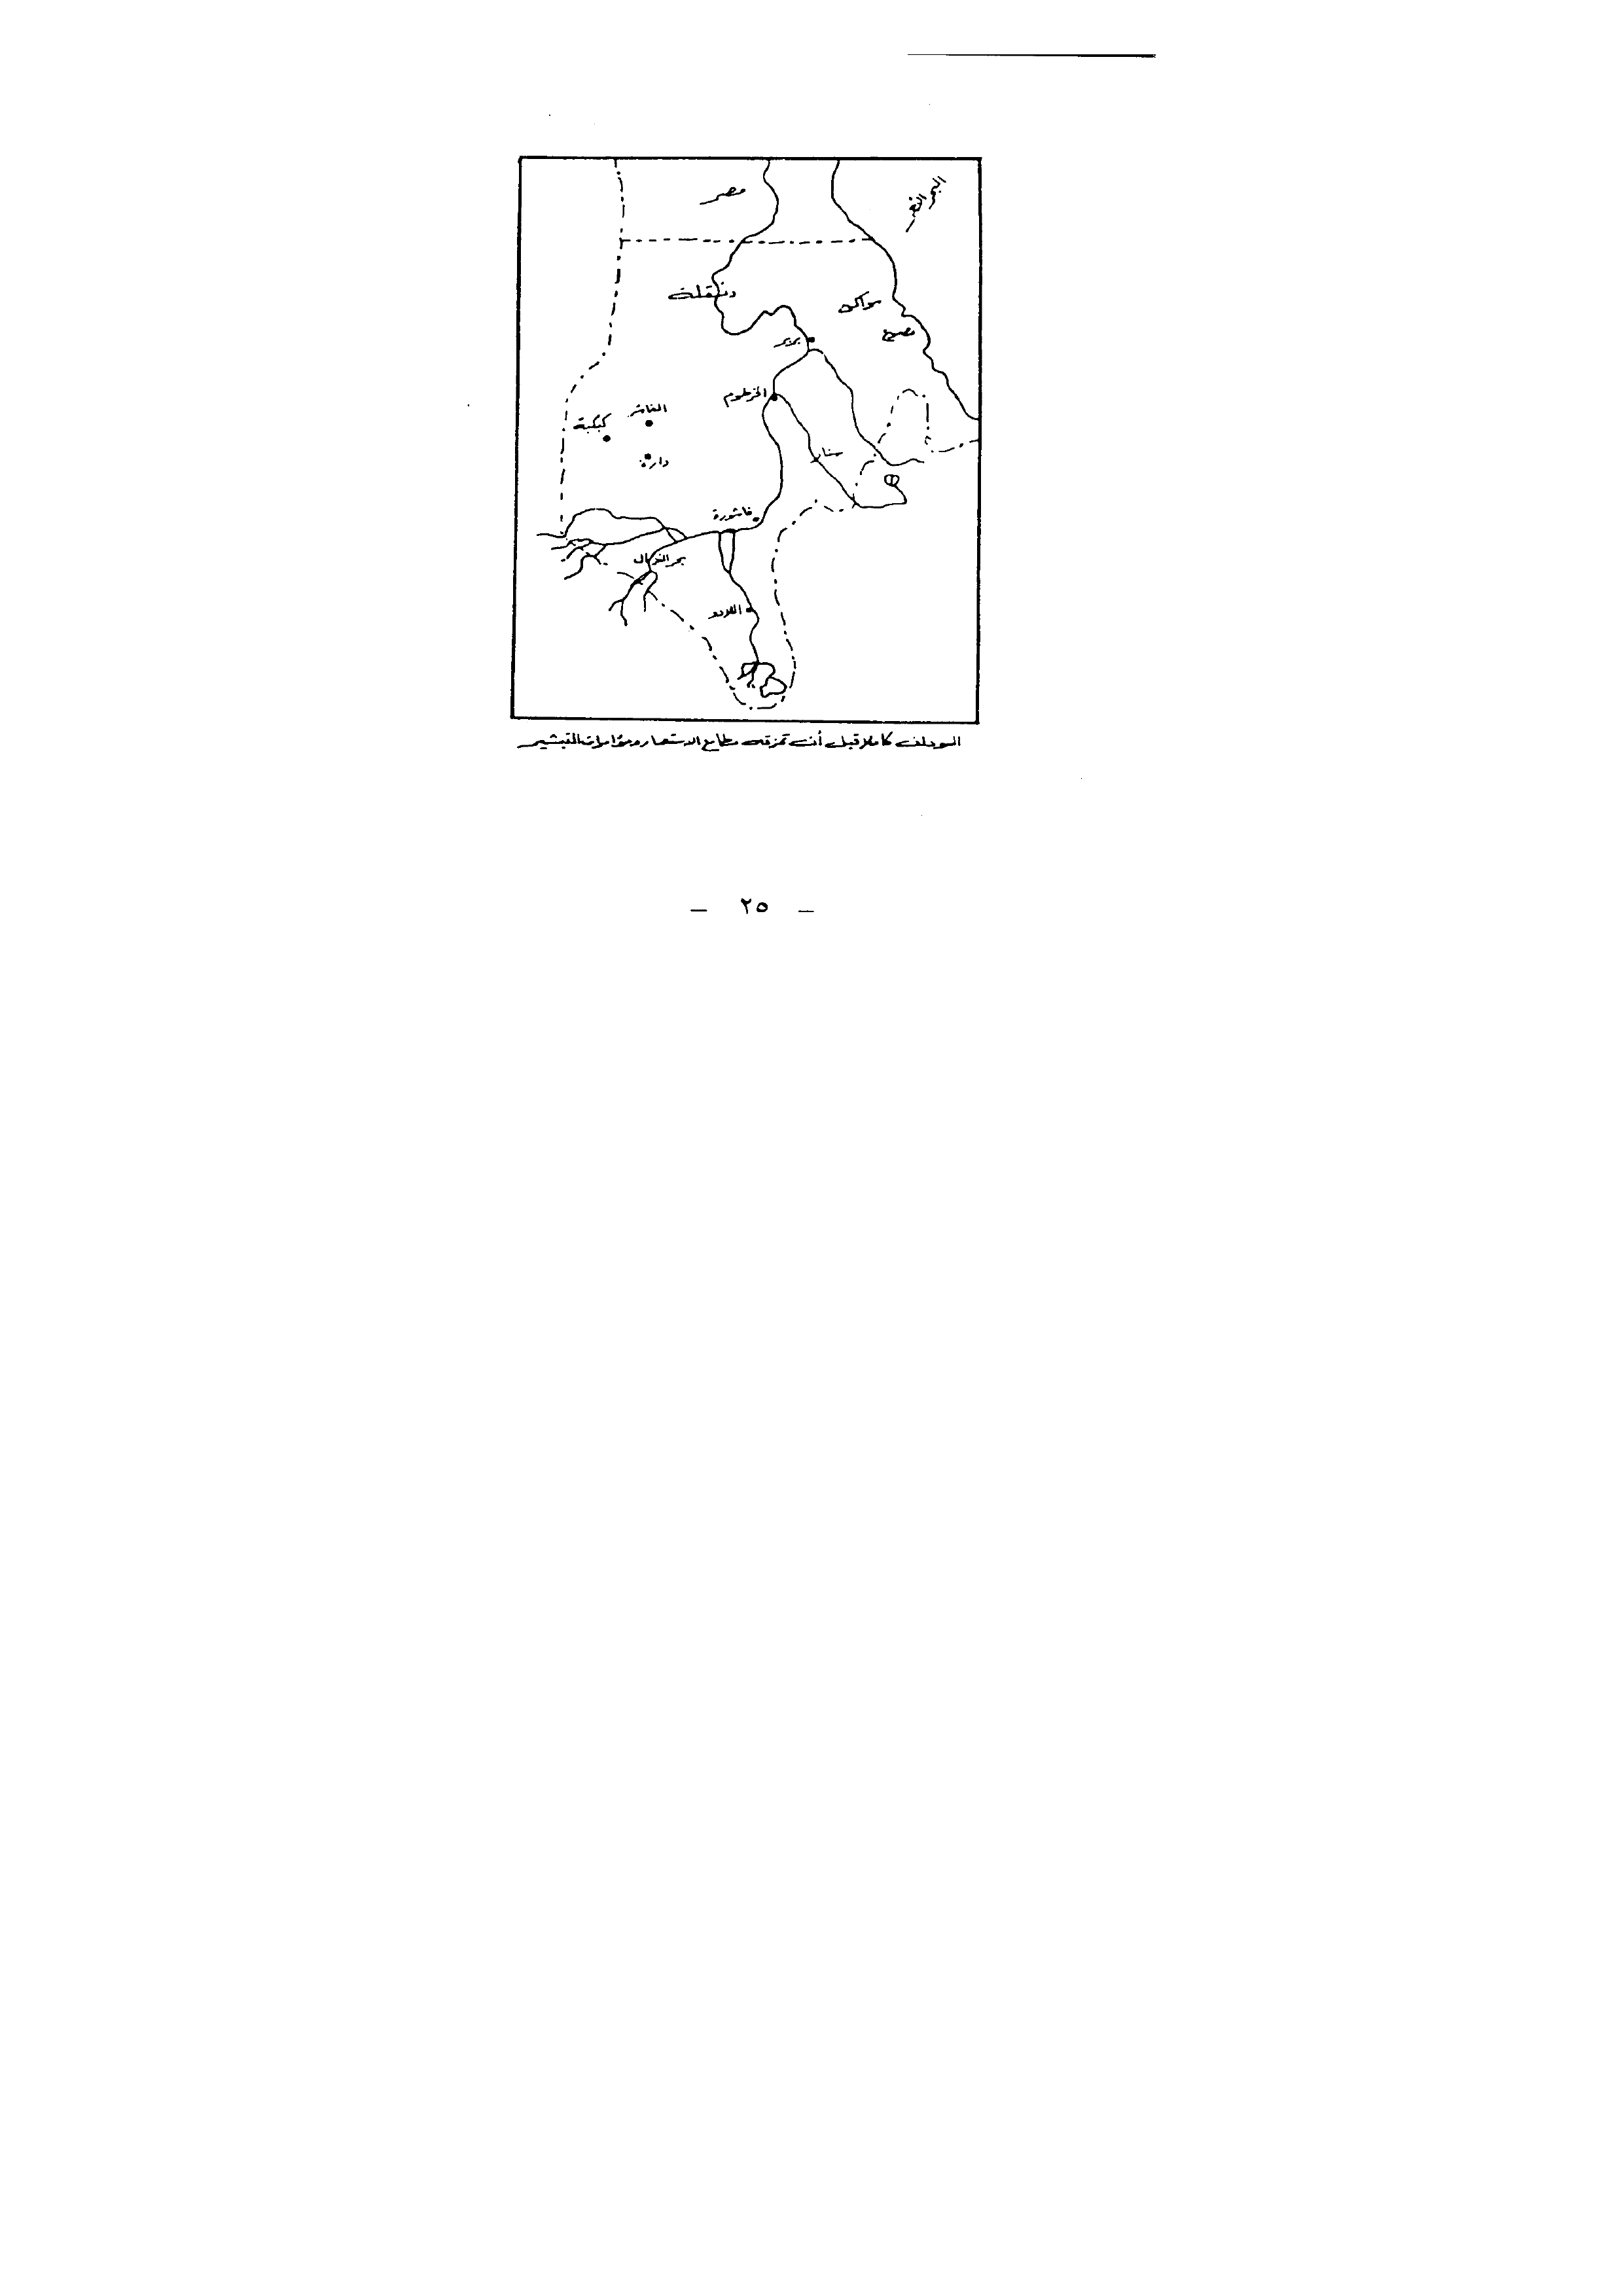 مصر
البحر
دنقلة
سواكن
مصوع
بربر
الخرطوم
الفاشر
كبكبية
دارة
سنار
فاشودة
بحر الغزال
اللادو
السودان كاملا قبل أن تمزقه مطامع الاستعمار ومؤامرات التبشير
- ٢٥ -